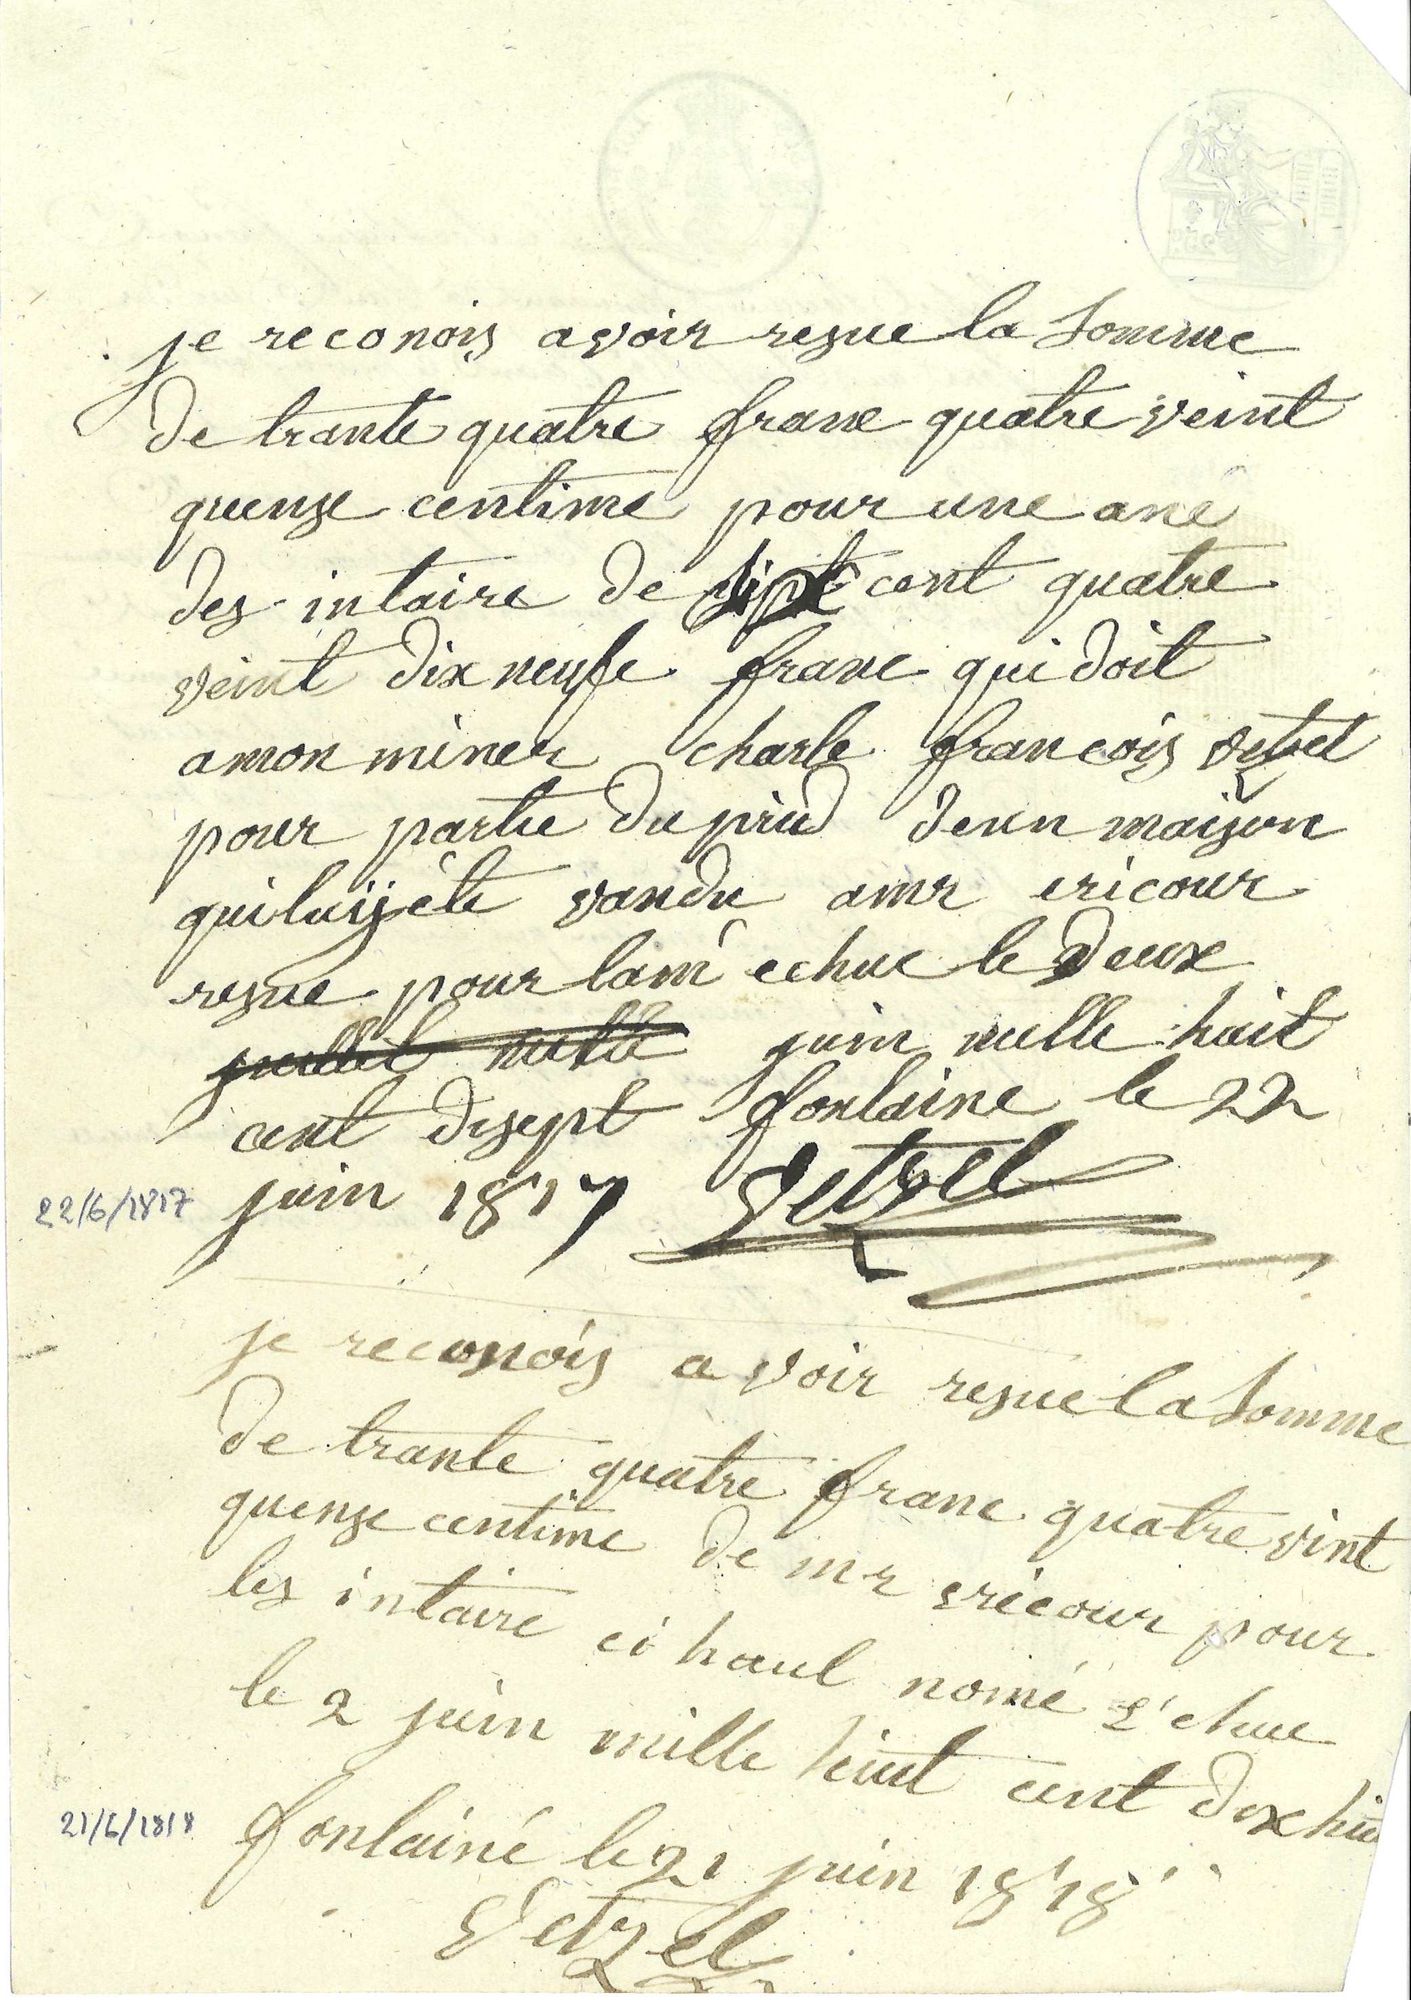 je reconois avoir resue la somme
de trante quatre franc quatre veint
quense centime pour une ané
des intaire de sept cent quatre
veint dix neufe franc qui doit
amon miner charle francois vetzel
pour partie du prid deun maison
quiluy éte vandu amr ericour
resue pour lané echue le deux
juin mille huit
cent disept fontaine le 22
22/6/1817 juin 1817 Vetzel
je reconois avoir resue la somme
de trante quatre franc quatre vint
quense centime de mr ericour pour
les intaire ci haut nomé echue
le 2 juin mille huit cent dix hui
21/6/1818 fontainé le 21 juin 1818
Vetzel